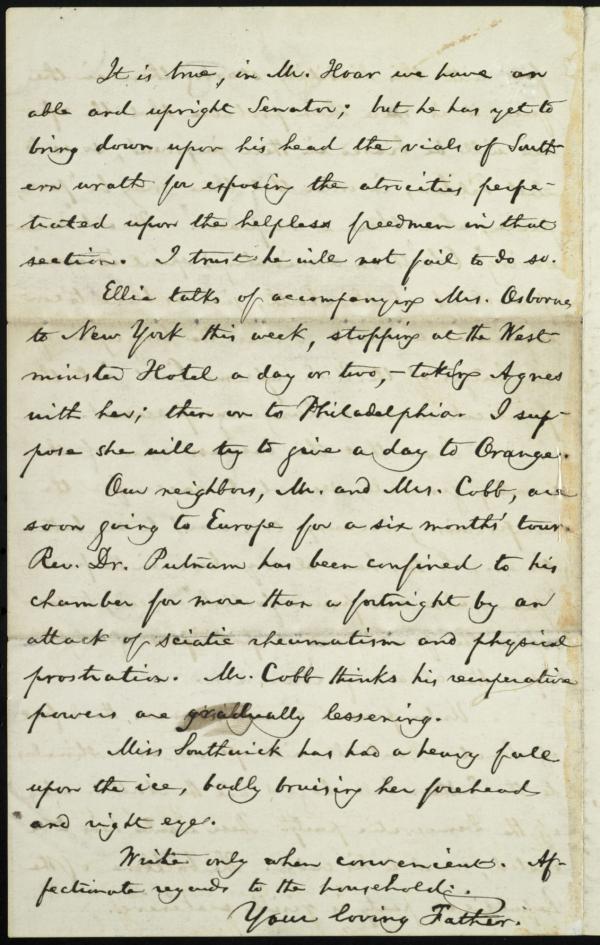 It is true, in Mr. Hoar we have an
able and upright Senator; but he has yet to
bring down upon his head the vials of South-
ern wrath for exposing the atrocities perpe-
trated upon the helpless freedmen in that
section. I trust he will not fail to do so.
Ellie talks of accompanying Mrs. Osborne
to New York this week, stopping at the West-
minster Hotel a day or two, – taking Agnes
with her; then on to Philadelphia. I sup-
pose she will try to give a day to Orange.
Our neighbors, Mr. and Mrs. Cobb, are
soon going to Europe for a six months' tour.
Rev. Dr. Putnam has been confined to his
chamber for more than a fortnight by an
attack of sciatic rheumatism and physical
prostration. Mr. Cobb thinks his recuperative
powers are gradually lessening.
Miss Southwick has had a heavy fall
upon the ice, badly bruising her forehead
and right eye.
Write only when convenient. Af-
fectionate regards to the household.
Your loving Father.